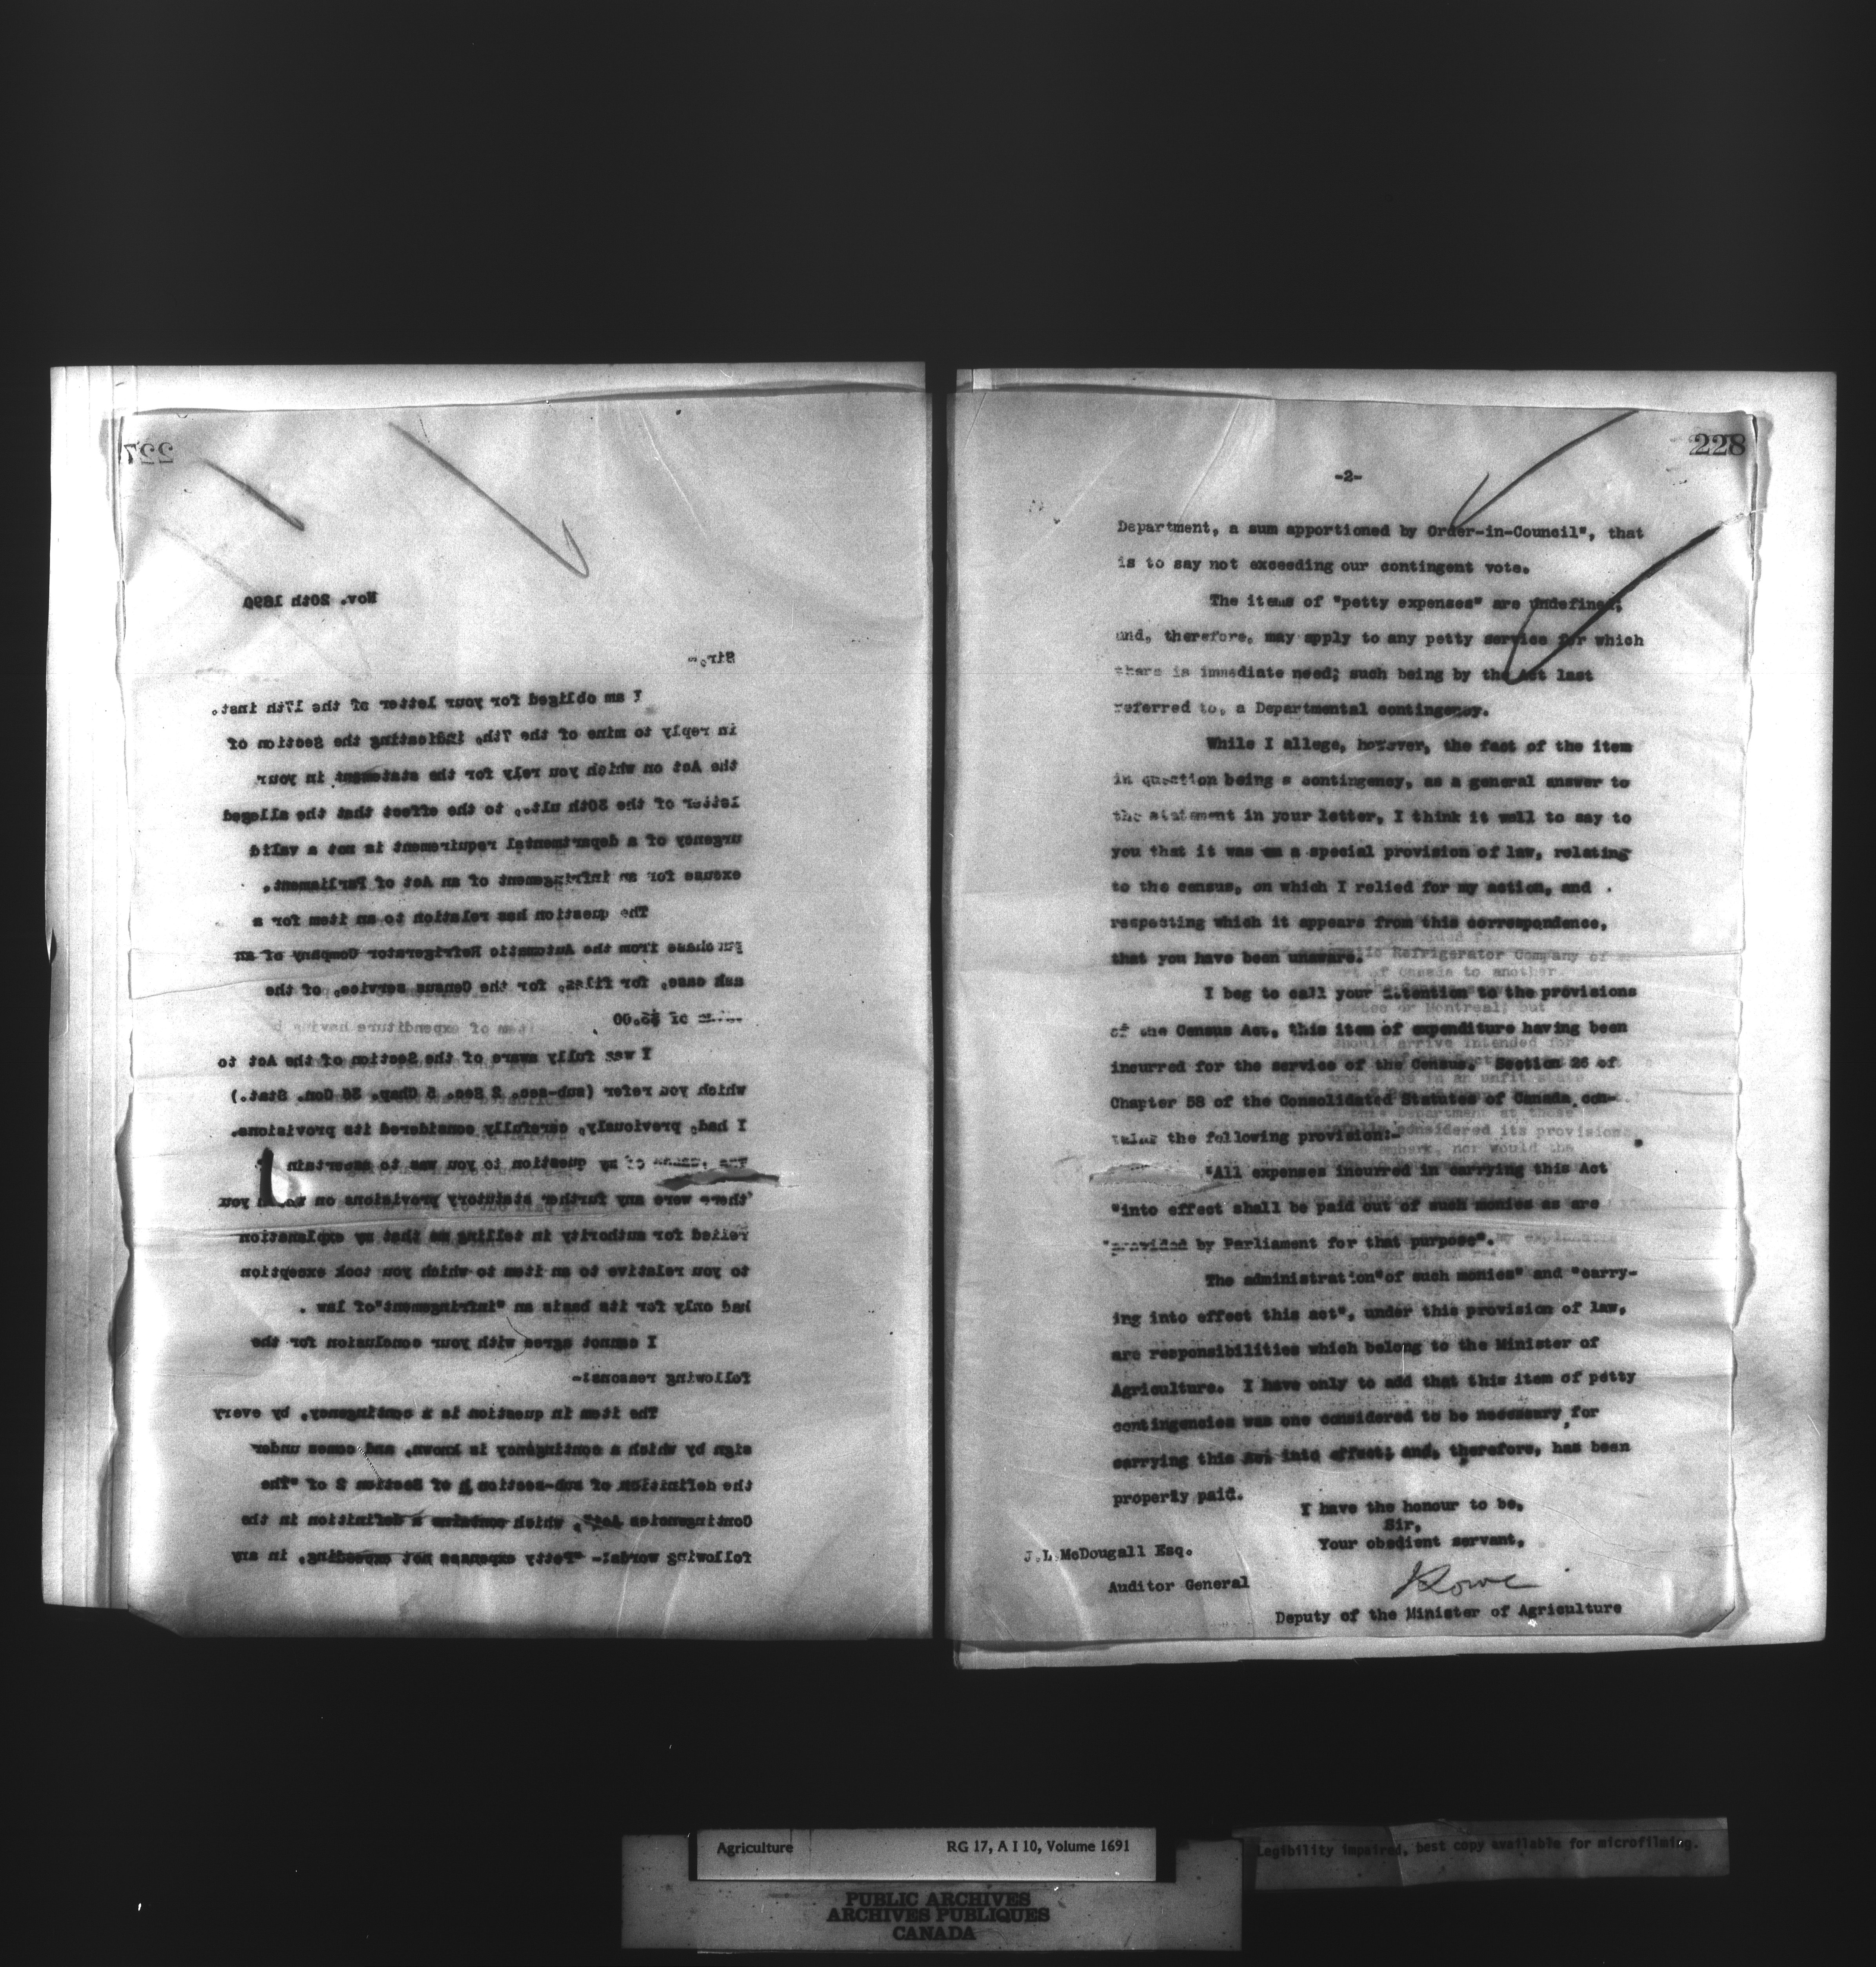 227
Nov. 20th 1890
Sir,-
I am obliged for your letter of the 17th inst.
in reply to mine of the 7th, indicating the Section of
the Act on which you rely for the statement in your
letter of the 30th ult., to the effect that the alleged
urgency of a departmental requirement is not a valid
excuse for an infringement of an Act of Parliament.
The question has relation to an item for a
purchase from the Automatic Refrigerator Company of an
ash case, for files, for the Census service, of the
of $5.00
I was fully aware of the Section of the Act to
which you refer (sub-sec. 2 Sec. 5 Chap. 36 Con. Stat.)
I had, previously, carefully considered its provisions.
The of my question to you was to ascertain
there were any further statutory provisions on you
relied for authority in telling me that my explanation
to you relative to an item to which you took exception
had only for its basis an "infringement" of law .
I cannot agree with your conclusion for the
following reasons:-
The item in question is a contingency, by every
sign by which a contingency is known, and comes under
the definition of sub-section of Section 2 of "The
Contingencies Act", which contains a definition in the
following words:- "Petty expenses not exceeding, in any
228
-2-
Department, a sum apportioned by Order-in-Council", that
is to say not exceeding our contingent vote.
The items of "petty expenses" are undefined;
and, therefore, may apply to any petty service for which
there is immediate need; such being by the Act last
referred to, a Departmental contingency.
While I allege, however, the fact of the item
in question being a contingency, as a general answer to
the statement in your letter, I think it well to say to
you that it was on a special provision of law, relating
to the census, on which I relied for my action, and .
respecting which it appears from this correspondence,
that you have been unaware.
I beg to call your attention to the provisions
of the Census Act, this item of expenditure having been
incurred for the service of the Census. Section 26 of
Chapter 58 of the Consolidated Statutes of Canada, con-
tains the following provision:-
"All expenses incurred in carrying this Act
"into effect shall be paid out of such monies as are
"provided by Parliament for that purpose".
The administration "of such monies" and "carry-
ing into effect this act", under this provision of law,
are responsibilities which belong to the Minister of
Agriculture. I have only to add that this item of petty
contingencies was one considered to be necessary, for
carrying this Act into effect; and, therefore, has been
properly paid.
I have the honour to be,
Sir,
Your obedient servant,
J.L.McDougall Esq.
Auditor General
Lowe
Deputy of the Minister of Agriculture
Agriculture RG 17, A I 10, Volume 1691
Legibility impaired, best copy available for microfilming.
PUBLIC ARCHIVES
ARCHIVES PUBLIQUES
CANADA